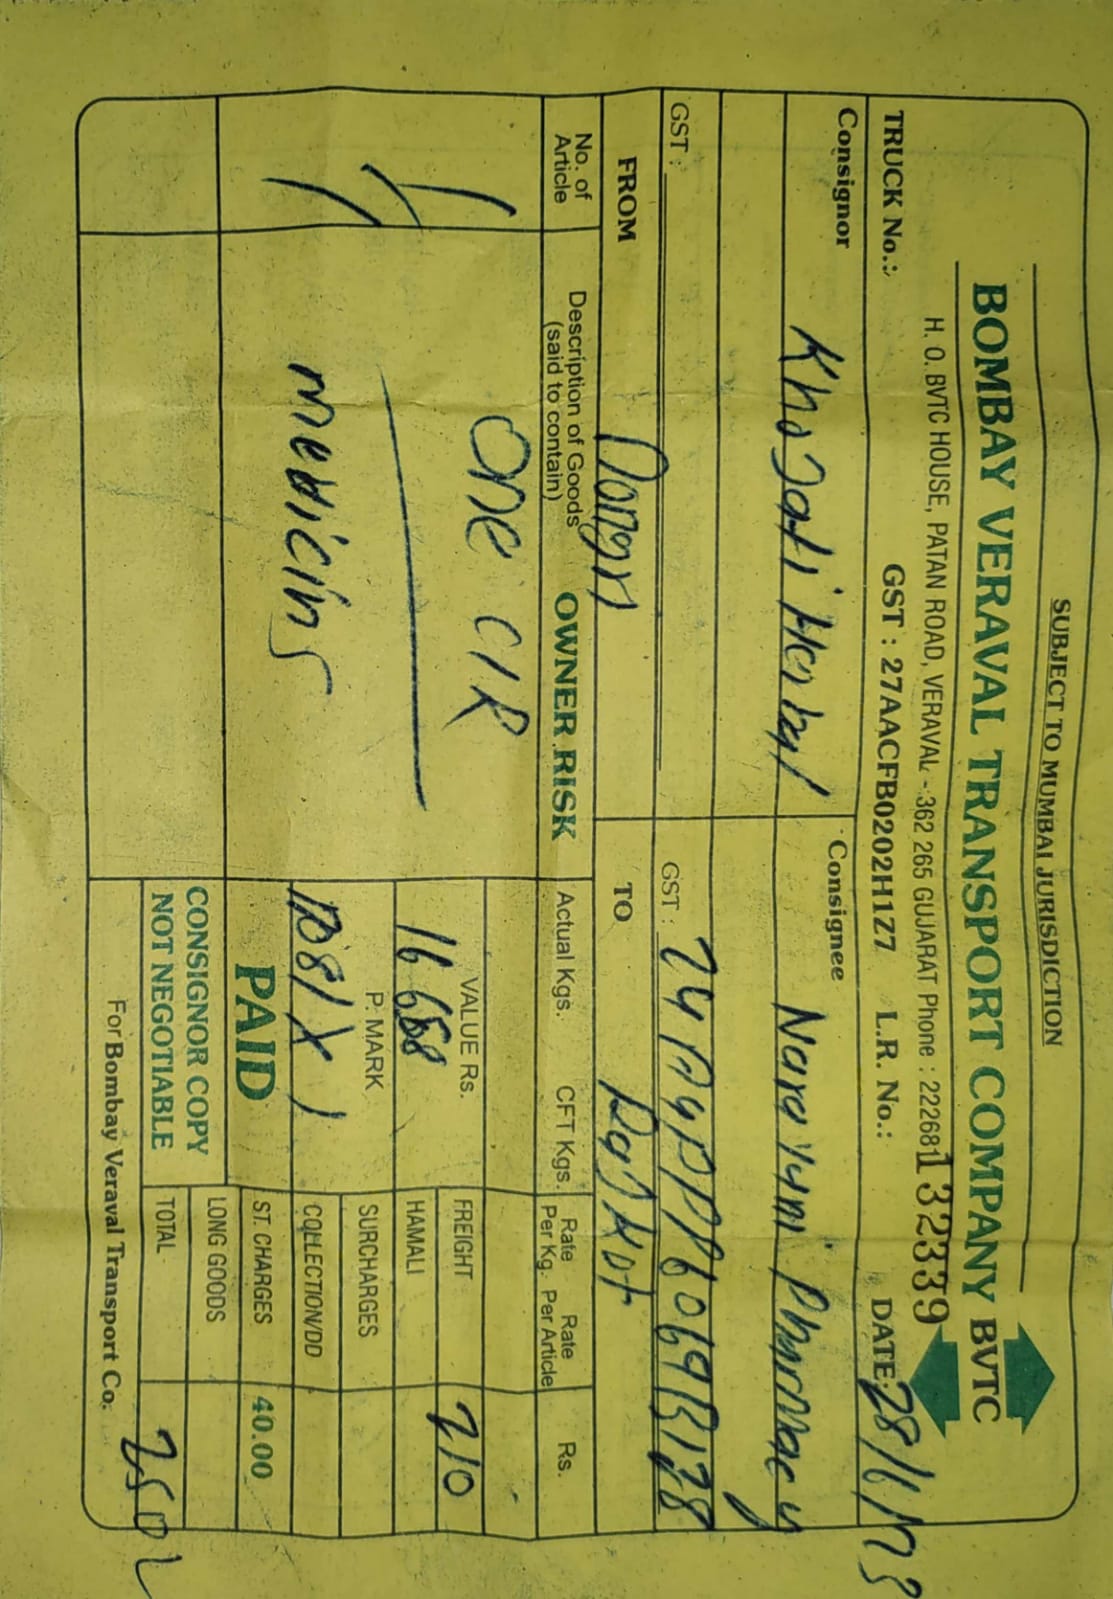 SUBJECT TO MUMBAI JURISDICTION
BOMBAY VERAVAL TRANSPORT COMPANY BVTC
H. O. BVTC HOUSE, PATAN ROAD, VERAVAL - 362 265 GUJARAT Phone : 222681
132339
TRUCK No.: GST : 27AACFB0202H1Z7 L.R. No.: DATE: 28/6/
Consignor Consignee
Narayani Pharmacy
GST : GST :
FROM Dongri TO Rajkot
No. of Article Description of Goods (said to contain) OWNER RISK Actual Kgs. CFT Kgs. Rate Per Kg. Rate Per Article Rs.
1 one C/R
VALUE Rs. FREIGHT 210
HAMALI
P. MARK SURCHARGES
medicins COLLECTION/DD
PAID ST. CHARGES 40.00
CONSIGNOR COPY LONG GOODS
NOT NEGOTIABLE TOTAL 250
For Bombay Veraval Transport Co.